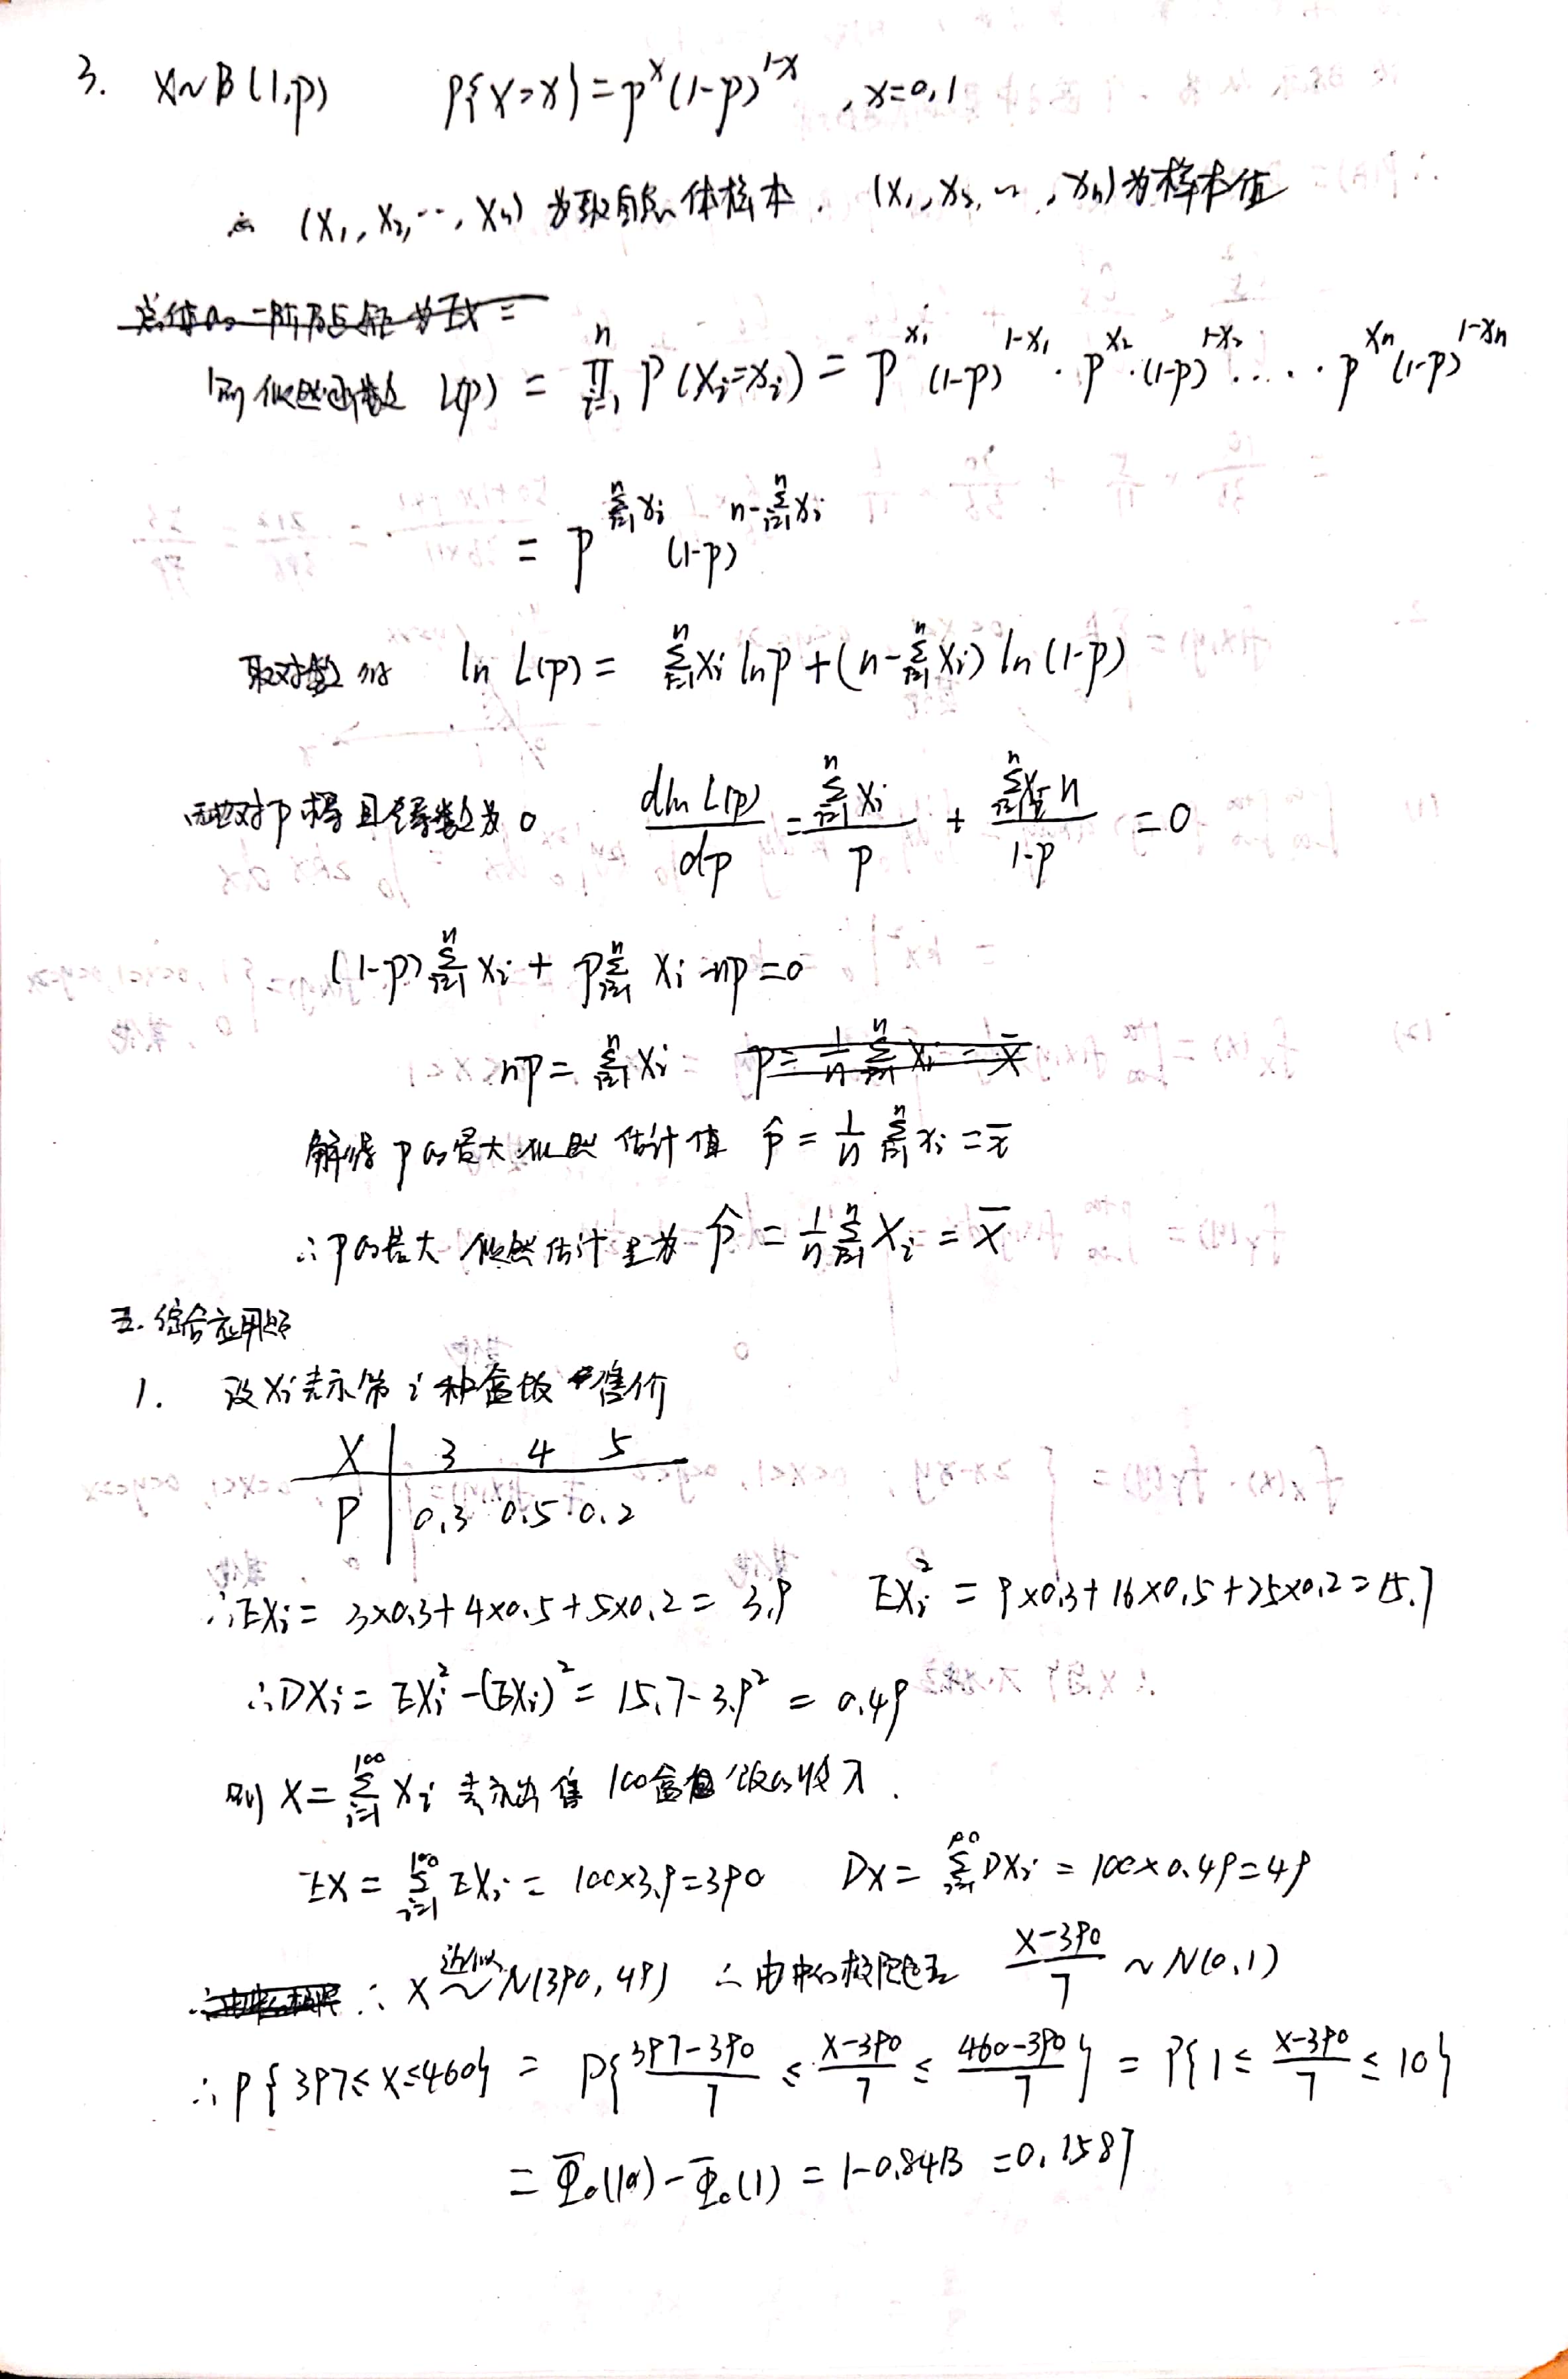 3. X~B(1,p) P{X=x}=p^x(1-p)^{1-x}, x=0,1
(X₁,X₂,…,Xₙ)为取自总体样本. (x₁,x₂,…,xₙ)为样本值
总体的一阶原点矩为EX=
则似然函数 L(p) = ∏_{i=1}^{n} P(X_i=x_i) = p^{x₁}(1-p)^{1-x₁}·p^{x₂}·(1-p)^{1-x₂}·…·p^{xₙ}(1-p)^{1-xₙ}
= p^{∑_{i=1}^{n}x_i}(1-p)^{n-∑_{i=1}^{n}x_i}
取对数得 ln L(p) = ∑_{i=1}^{n}x_i ln p+(n-∑_{i=1}^{n}x_i) ln(1-p)
对p求导且令导数为0 dln L(p)/dp = ∑_{i=1}^{n}x_i/p + (∑_{i=1}^{n}x_i-n)/(1-p) = 0
(1-p)∑_{i=1}^{n}x_i + p∑_{i=1}^{n}x_i-np=0
np = ∑_{i=1}^{n}x_i p = 1/n ∑_{i=1}^{n}x_i = x̄
解得p的最大似然估计值 p̂ = 1/n ∑_{i=1}^{n}x_i = x̄
∴p的最大似然估计量为 p̂ = 1/n ∑_{i=1}^{n}X_i = X̄
五.综合应用题
1. 设X_i表示第i种盒饭售价
X | 3 4 5
P | 0.3 0.5 0.2
∴EX_i = 3×0.3+4×0.5+5×0.2 = 3.9 EX_i² = 9×0.3+16×0.5+25×0.2=15.7
∴DX_i = EX_i²-(EX_i)² = 15.7-3.9² = 0.49
则 X=∑_{i=1}^{100}X_i 表示出售100盒饭的收入.
EX = ∑_{i=1}^{100}EX_i = 100×3.9=390 DX = ∑_{i=1}^{100}DX_i = 100×0.49=49
∴由中心极限 ∴ X 近似~ N(390,49) ∴由中心极限定理 (X-390)/7 ~ N(0,1)
∴P{397≤X≤460} = P{(397-390)/7 ≤ (X-390)/7 ≤ (460-390)/7} = P{1≤ (X-390)/7 ≤10}
= Φ₀(10)-Φ₀(1) = 1-0.8413 = 0.1587